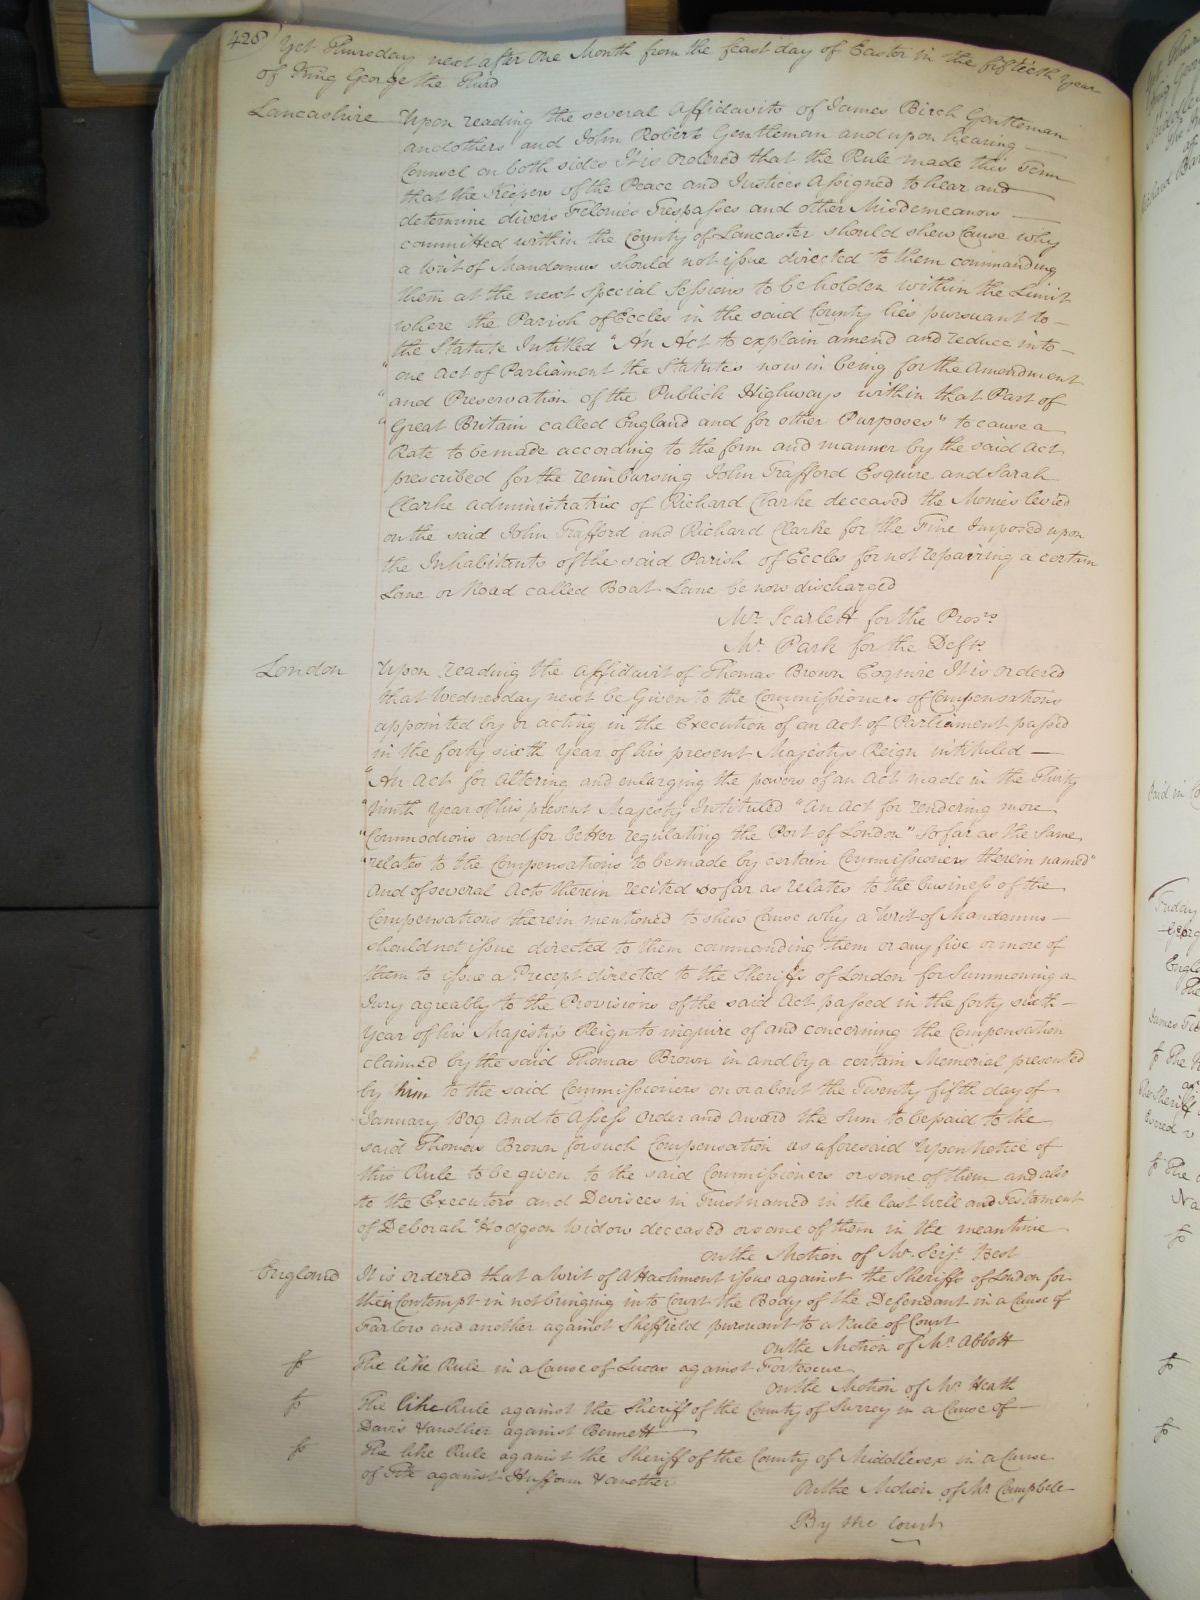 428
Yet Thursday next after One Month from the feast day of Easter in the fiftieth Year
of King George the Third
Lancashire Upon reading the several Affidavits of James Birch Gentleman
and others and John Roberts Gentleman and upon hearing
Counsel on both sides It is ordered that the Rule made this Term
that the Keepers of the Peace and Justices Assigned to hear and
determine divers Felonies Trespasses and other Misdemeanors
committed within the County of Lancaster should shew Cause why
a Writ of Mandamus should not issue directed to them commanding
them at the next special Sessions to be holden within the Limit
where the Parish of Eccles in the said County lies pursuant to
the Statute Intitled "An Act to explain amend and reduce into
" one Act of Parliament the Statutes now in being for the Amendment
" and Preservation of the Publick Highways within that Part of
" Great Britain called England and for other Purposes" to cause a
Rate to be made according to the form and manner by the said Act
prescribed for the reimbursing John Trafford Esquire and Sarah
Clarke administratrix of Richard Clarke deceased the Monies levied
on the said John Trafford and Richard Clarke for the Fine Imposed upon
the Inhabitants of the said Parish of Eccles for not repairing a certain
Lane or Road called Boat Lane be now discharged
Mr. Scarlett for the Pros.rs
Mr. Park for the Defts.
London Upon reading the Affidavit of Thomas Brown Esquire It is ordered
that Wednesday next be Given to the Commissioners of Compensations
appointed by or acting in the Execution of an Act of Parliament passed
in the forty sixth Year of his present Majestys Reign intituled
"An Act for altering and enlarging the powers of an Act made in the Thirty
"Ninth Year of his present Majesty Instituled "An Act for rendering more
"Commodious and for better regulating the Port of London" so far as the same
"relates to the Compensations to be made by certain Commissioners therein named"
And of several Acts therein recited so far as relates to the business of the
Compensations therein mentioned to shew Cause why a Writ of Mandamus
should not issue directed to them commanding them or any five or more of
them to issue a Precept directed to the Sheriffs of London for Summoning a
Jury agreably to the Provisions of the said Act passed in the forty sixth
Year of his Majestys Reign to inquire of and concerning the Compensation
claimed by the said Thomas Brown in and by a certain Memorial presented
by him to the said Commissioners on or about the Twenty fifth day of
January 1809 And to Assess Order and Award the Sum to be paid to the
said Thomas Brown for such Compensation as aforesaid Upon notice of
this Rule to be given to the said Commissioners or some of them and also
to the Executors and Devisees in Trust named in the last Will and Testament
of Deborah Hodgson Widow deceased or some of them in the meantime
On the Motion of Mr. Serjt. Best
England It is ordered that a Writ of Attachment issue against the Sheriffs of London for
their Contempt in not bringing into Court the Body of the Defendant in a Cause of
Farlow and another against Sheffield pursuant to a Rule of Court
On the Motion of Mr. Abbott
The like Rule in a Cause of Lucas against Fortescue
On the Motion of Mr. Heath
The like Rule against the Sheriff of the County of Surrey in a Cause of
Davis & another against Bennett
The like Rule against the Sheriff of the County of Middlesex in a Cause
of against Huffam & another
On the Motion of Mr. Campbell
By the Court